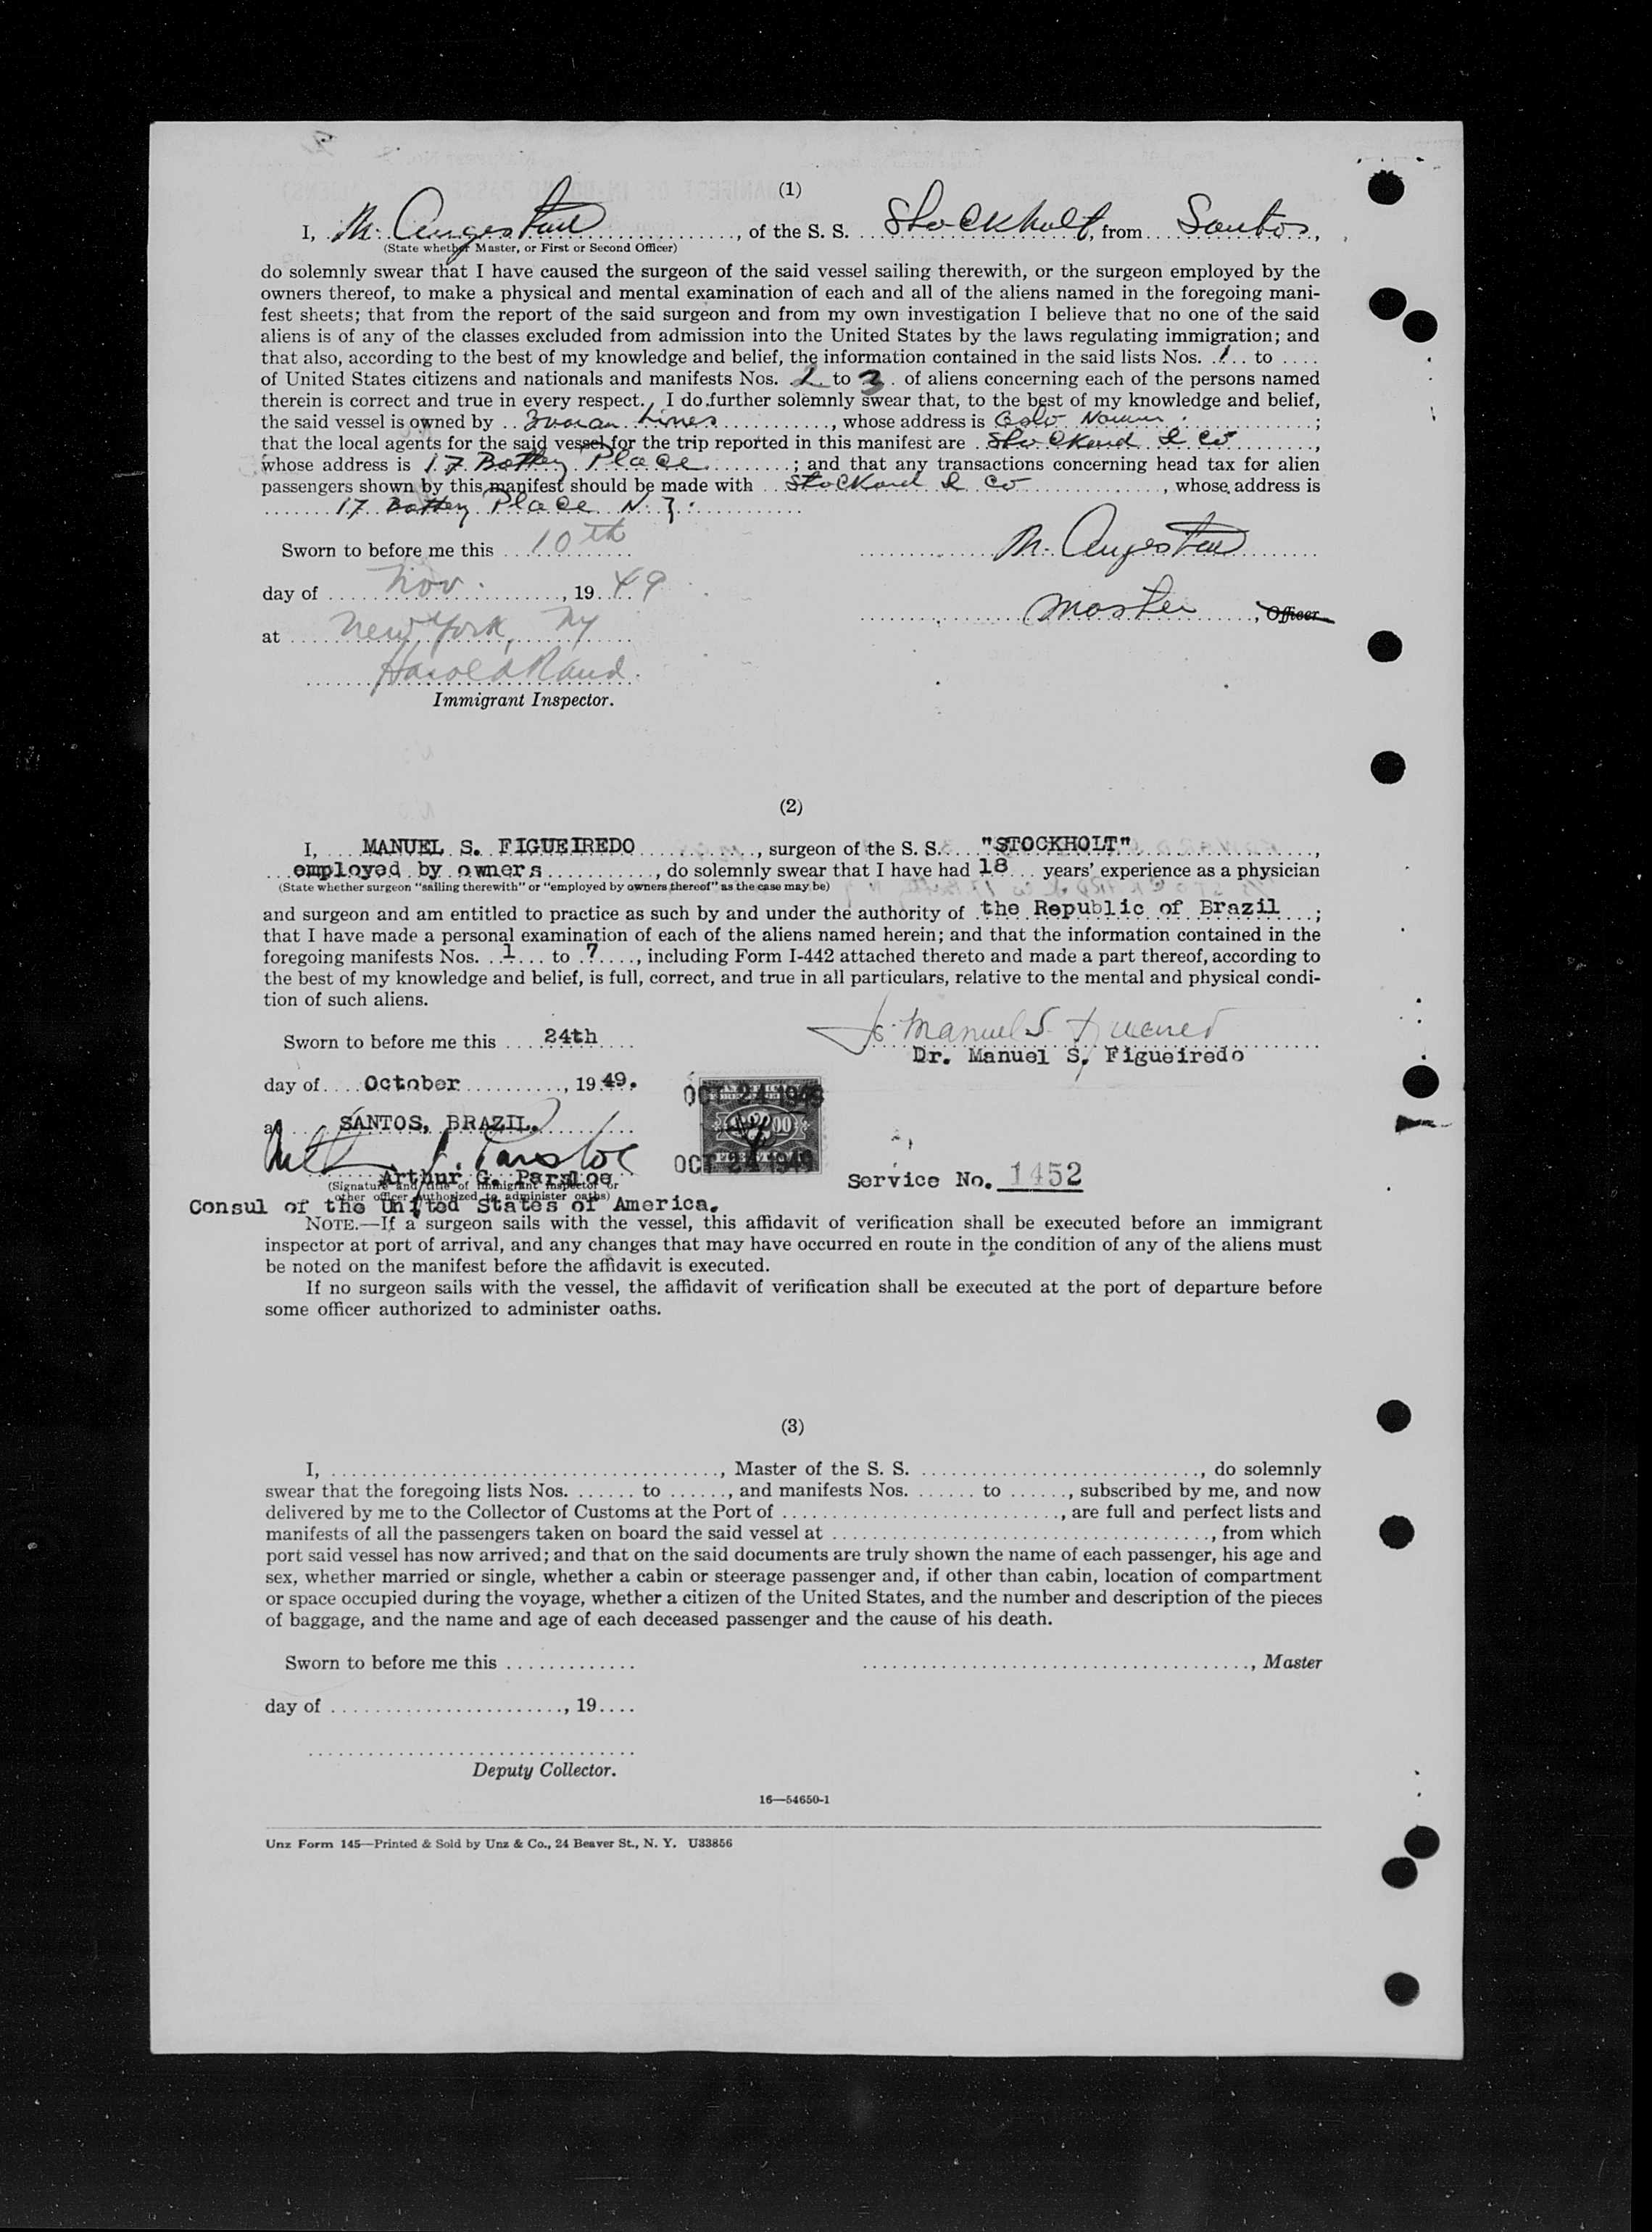 (1)
I, M. Augestad, of the S. S. Stockholt, from Santos,
(State whether Master, or First or Second Officer)
do solemnly swear that I have caused the surgeon of the said vessel sailing therewith, or the surgeon employed by the
owners thereof, to make a physical and mental examination of each and all of the aliens named in the foregoing mani-
fest sheets; that from the report of the said surgeon and from my own investigation I believe that no one of the said
aliens is of any of the classes excluded from admission into the United States by the laws regulating immigration; and
that also, according to the best of my knowledge and belief, the information contained in the said lists Nos. 1 to ....
of United States citizens and nationals and manifests Nos. 2 to 3 of aliens concerning each of the persons named
therein is correct and true in every respect. I do further solemnly swear that, to the best of my knowledge and belief,
the said vessel is owned by Ivaran Lines, whose address is Oslo ;
that the local agents for the said vessel for the trip reported in this manifest are Stockard & Co,
whose address is 17 Battery Place; and that any transactions concerning head tax for alien
passengers shown by this manifest should be made with Stockard & Co, whose address is
17 Battery Place N.Y.
Sworn to before me this 10th
M. Augestad
day of Nov., 1949
Master, Officer
at New York, NY
Harold Rand
Immigrant Inspector.
(2)
I, MANUEL S. FIGUEIREDO, surgeon of the S. S. "STOCKHOLT",
employed by owners, do solemnly swear that I have had 18 years' experience as a physician
(State whether surgeon "sailing therewith" or "employed by owners thereof" as the case may be)
and surgeon and am entitled to practice as such by and under the authority of the Republic of Brazil;
that I have made a personal examination of each of the aliens named herein; and that the information contained in the
foregoing manifests Nos. 1 to 7, including Form I-442 attached thereto and made a part thereof, according to
the best of my knowledge and belief, is full, correct, and true in all particulars, relative to the mental and physical condi-
tion of such aliens.
Sworn to before me this 24th
Manuel S. Figueiredo
Dr. Manuel S. Figueiredo
day of October, 1949.
OCT 24 1949
at SANTOS, BRAZIL.
OCT 24 1949
Arthur G. Parsloe
Service No. 1452
(Signature and title of immigrant inspector or
other officer authorized to administer oaths)
Consul of the United States of America.
NOTE.—If a surgeon sails with the vessel, this affidavit of verification shall be executed before an immigrant
inspector at port of arrival, and any changes that may have occurred en route in the condition of any of the aliens must
be noted on the manifest before the affidavit is executed.
If no surgeon sails with the vessel, the affidavit of verification shall be executed at the port of departure before
some officer authorized to administer oaths.
(3)
I, ......................................., Master of the S. S. ............................, do solemnly
swear that the foregoing lists Nos. ...... to ......, and manifests Nos. ...... to ......, subscribed by me, and now
delivered by me to the Collector of Customs at the Port of ............................, are full and perfect lists and
manifests of all the passengers taken on board the said vessel at ......................................, from which
port said vessel has now arrived; and that on the said documents are truly shown the name of each passenger, his age and
sex, whether married or single, whether a cabin or steerage passenger and, if other than cabin, location of compartment
or space occupied during the voyage, whether a citizen of the United States, and the number and description of the pieces
of baggage, and the name and age of each deceased passenger and the cause of his death.
Sworn to before me this .............
......................................., Master
day of ......................., 19....
Deputy Collector.
16—54650-1
Unz Form 145—Printed & Sold by Unz & Co., 24 Beaver St., N. Y. U33856